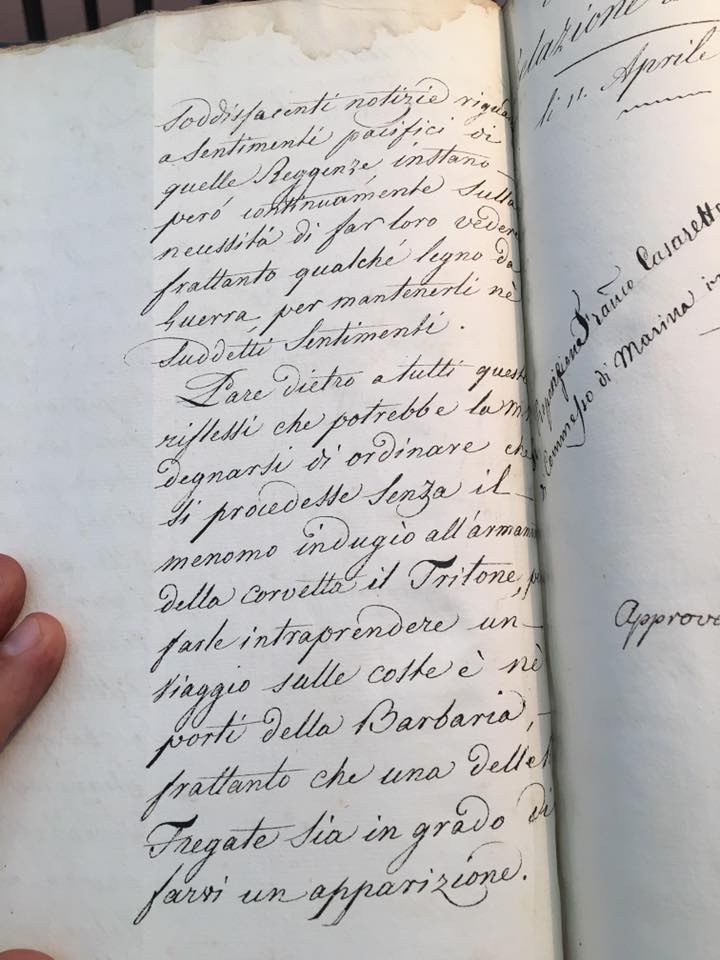 soddisfacenti notizie
a sentimenti pacifici di
quelle Reggenze instano
peró continuamente sulla
necessitá di far loro vedere
frattanto qualché legno da
Guerra, per mantenerli nè
suddetti sentimenti.
Pare dietro a tutti questi
riflessi che potrebbe la
degnarsi di ordinare che
si procedesse senza il
menomo indugio all'
della corvetta il Tritone,
farle intraprendere un
viaggio sulle coste è nè
porti della Barbaria,
frattanto che una delle
Fregate sia in grado di
farvi un apparizione.
li 11. Aprile
Casaretto
Commesso di Marina in